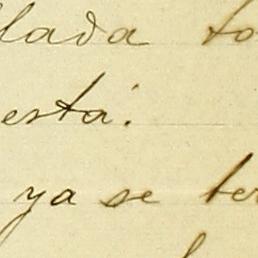 llada to
está.
ya se ter